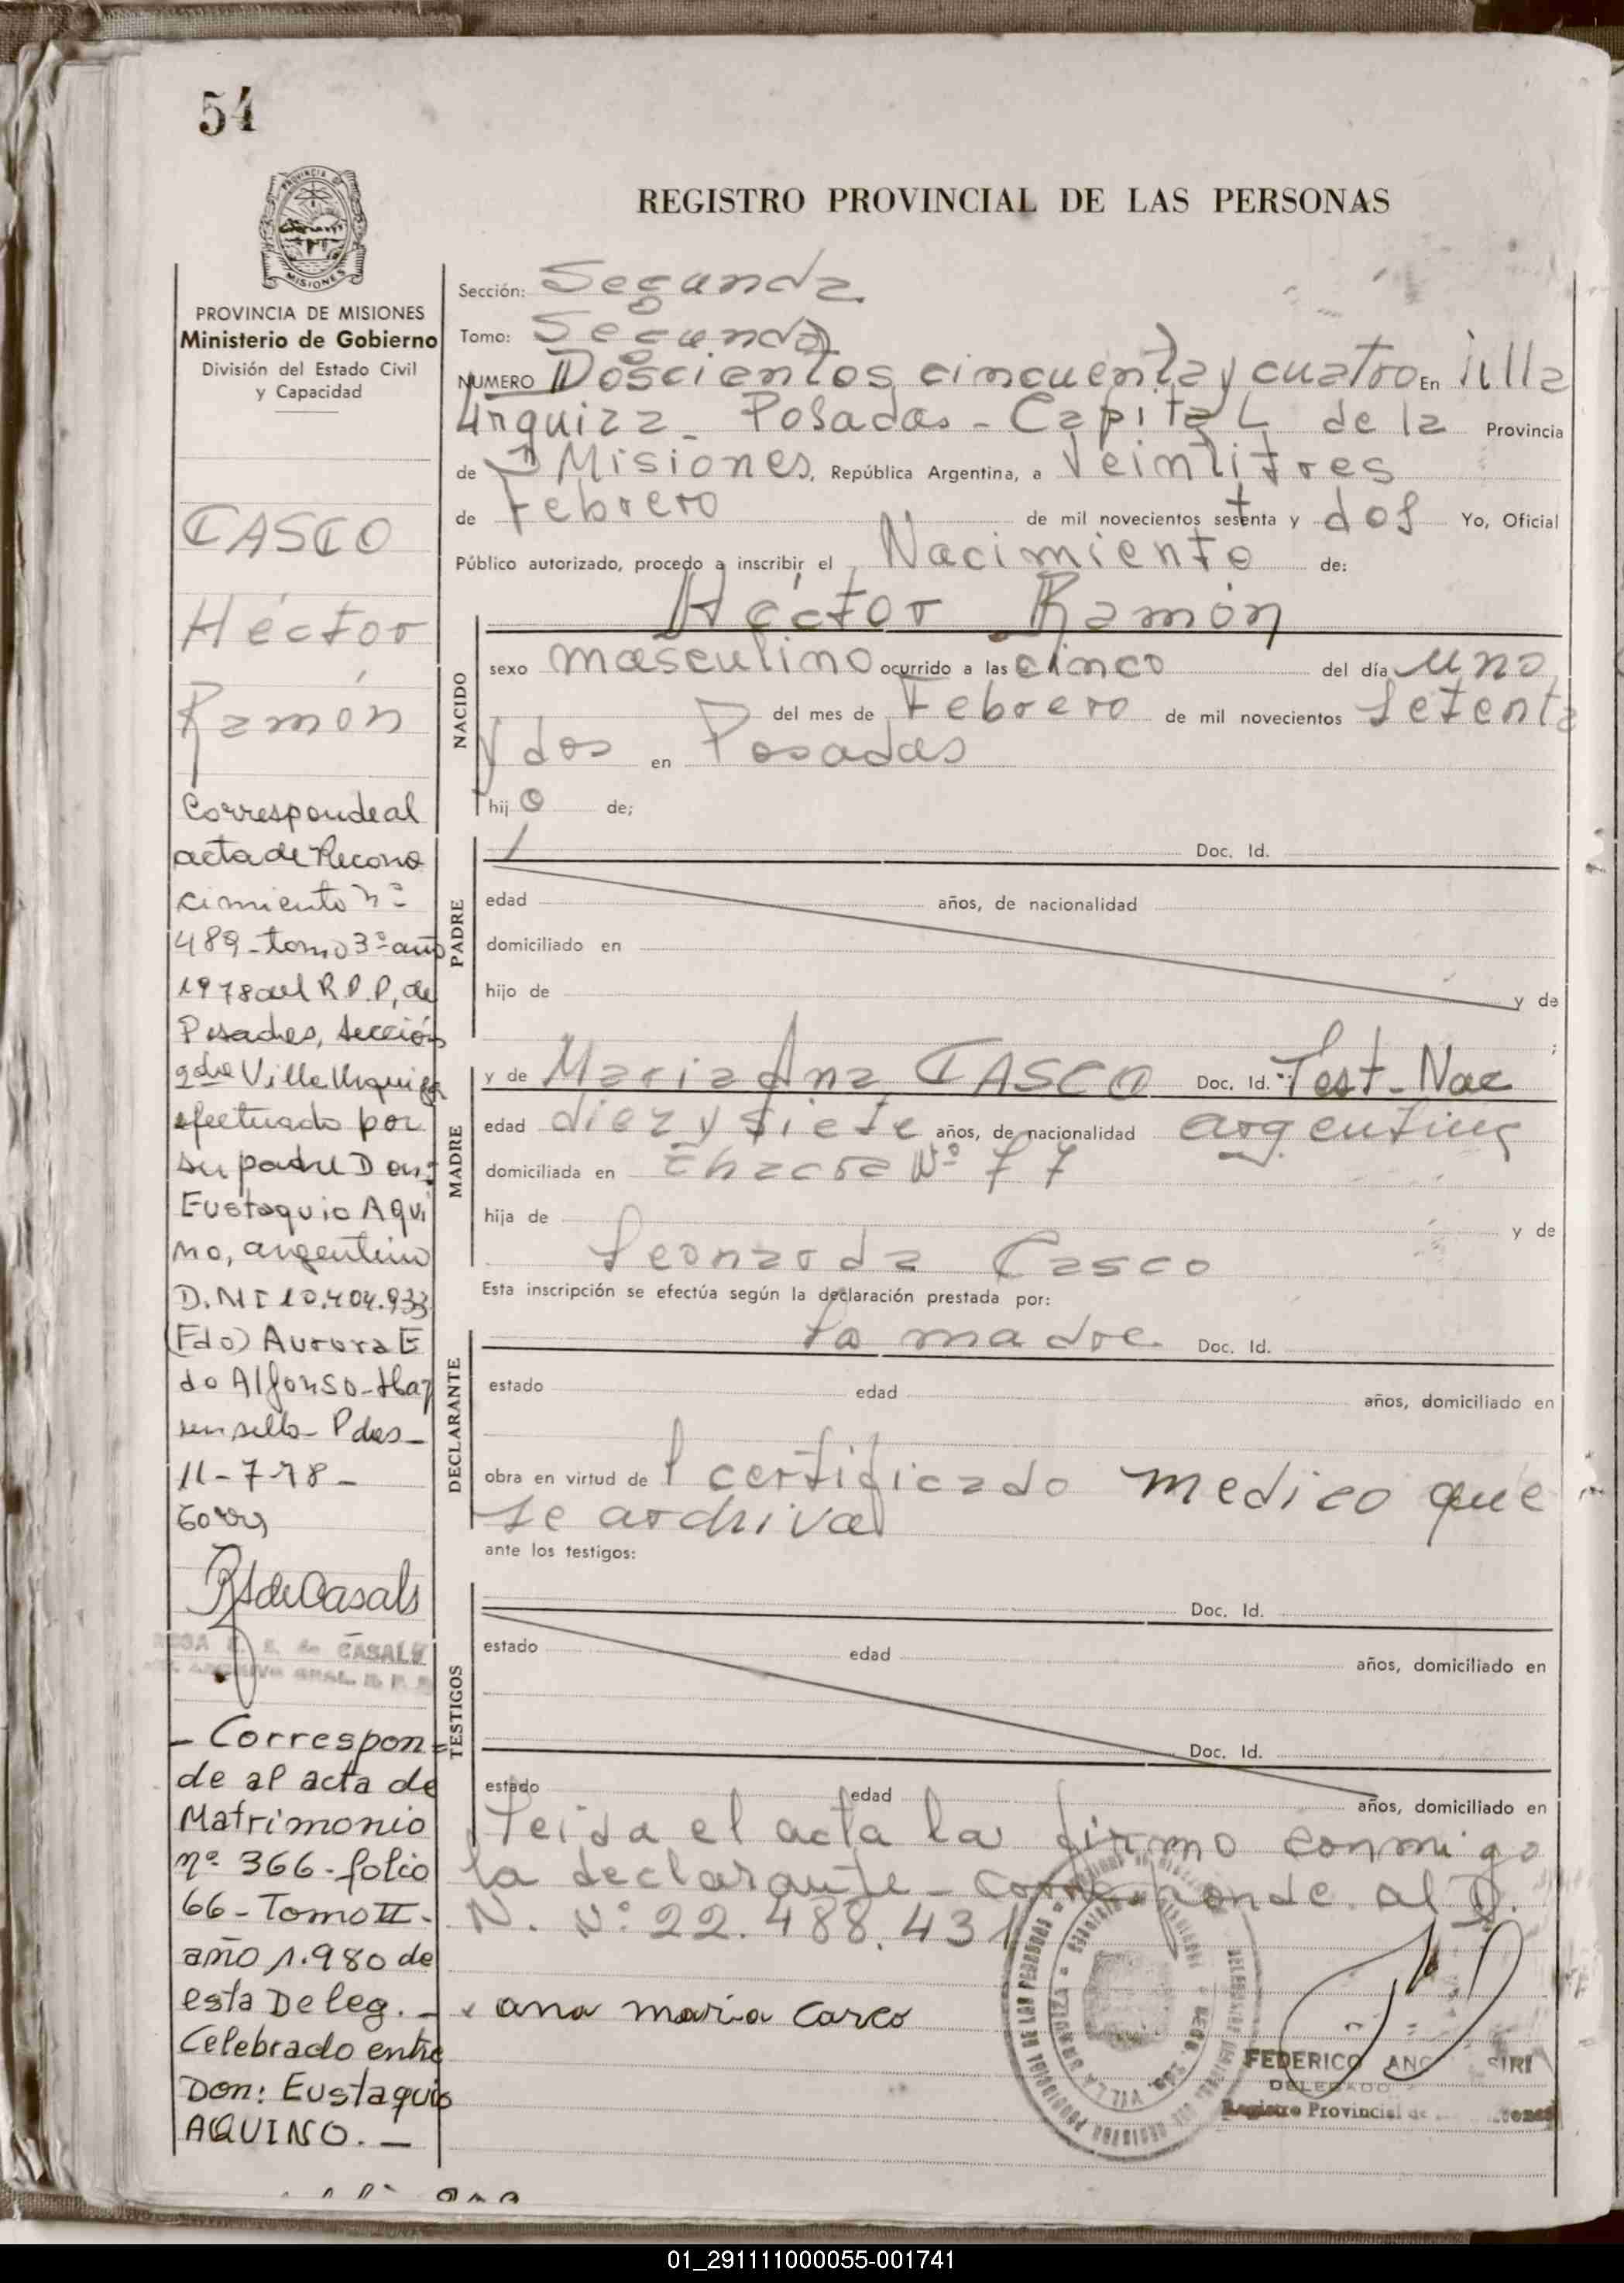 54
PROVINCIA DE MISIONES
PROVINCIA DE MISIONES
Ministerio de Gobierno
División del Estado Civil
y Capacidad
CASCO
Héctor
Ramón
Corresponde al
acta de Recono
cimiento nº
489 - tomo 3º año
1978 del R.P.P, de
Posadas, sección
2da Villa Urquiza
efectuado por
su padre Don:
Eustaquio Aqui
no, argentino
D.N.I 10.404.933
(Fdo) Aurora E
do Alfonso - Hay
un sello - Pdas -
11-7-78 -
RSdeCasals
E. S. de CASALS
- Correspon=
de al acta de
Matrimonio
nº 366 - folio
66 - Tomo II -
año 1.980 de
esta Deleg. -
Celebrado entre
Don: Eustaquio
AQUINO. -
REGISTRO PROVINCIAL DE LAS PERSONAS
Sección: Segunda
Tomo: Segundo
NUMERO Doscientos cincuenta y cuatro En Villa
Urquiza - Posadas - Capital de la Provincia
de Misiones, República Argentina, a Veintitres
de Febrero de mil novecientos setenta y dos Yo, Oficial
Público autorizado, procedo a inscribir el Nacimiento de:
Héctor Ramón
NACIDO
sexo masculino ocurrido a las cinco del día uno
del mes de Febrero de mil novecientos setenta
y dos en Posadas
hijo de;
PADRE
Doc. Id.
edad años, de nacionalidad
domiciliado en
hijo de y de
;
MADRE
y de Maria Ana CASCO Doc. Id. Test - Nac
edad diez y siete años, de nacionalidad argentina
domiciliada en Chacra Nº 77
hija de y de
Leonarda Casco
Esta inscripción se efectúa según la declaración prestada por:
DECLARANTE
La madre. Doc. Id.
estado edad años, domiciliado en
obra en virtud del certificado medico que
se archiva
ante los testigos:
TESTIGOS
Doc. Id.
estado edad años, domiciliado en
Doc. Id.
estado edad años, domiciliado en
Leida el acta la firmo conmigo
la declarante - corresponde al D.
N. Nº 22.488.431
x ana maria Casco
FEDERICO ANG SIRI
DELEGADO
Registro Provincial de
01_291111000055-001741